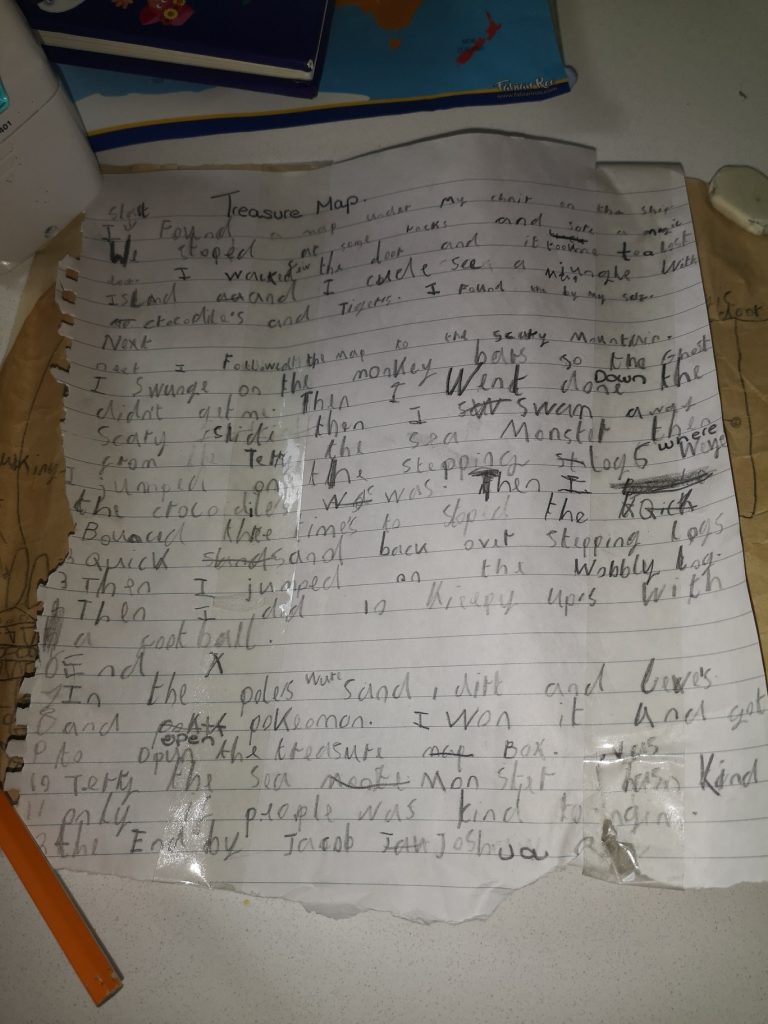 Fabian Ros
Treasure Map.
start
I Found a map under My chair on the ship.
We stoped at some rocks and sore a magic
door. I walked the door and it tea lost
ISLand and I cude see a jungle With
crocodile's and Tigers. I found by my selfe.
Next
next I Followed the map to the scary Mountain.
I swunge on the monkey bars so the Ghost
didn't get me. Then I Went done Down the
Scary slide then I swam away
from Terry the sea Monster then
I jumped on the stepping Log6 where Weye
the crocodiles was was. Then I
Bounced three times to stopid the Qick
Quick sand and back over stepping Logs
3 Then I jumped on the Wobbly Log.
Then I did 10 Kieepy ups With
a football.
End X
In the poles wure Sand, dirt and leve's
8 and pokeomon. I Won it And got
to open opun the treasure map Box.
10 Terry the Sea Monster Kind
11 only if people was kind to
the End by Jacob Joshua